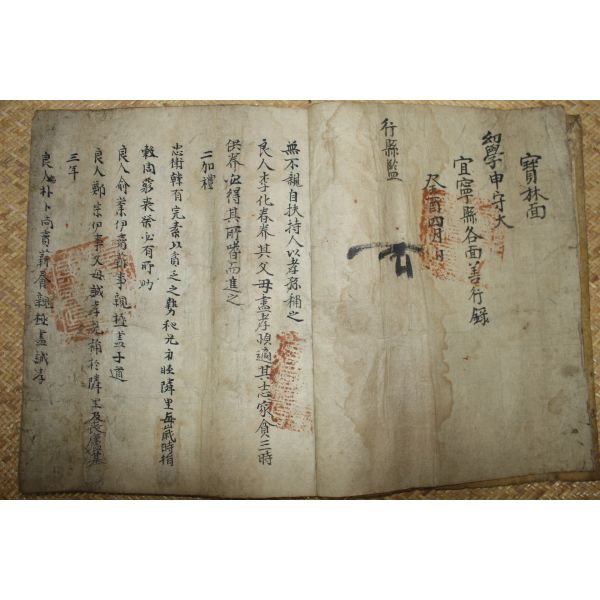 寶林面
幼學申守大
宜寧縣各面善行錄
癸酉四月 日
行縣監
無不親自扶持人以孝稱之
良人李化春養其父母盡孝順適其志家貧三時
供養必得其所嗜而進之
二加禮
忠衛韓有完素以貧乏之 秋元 睦隣里每歲時損
穀周窮喪葬必有所助
良人俞業伊 事親極盡子道
良人鄭崇伊事父母誠孝 稱於隣里及喪廬墓
三年
良人朴卜尙 薪養親極盡誠孝